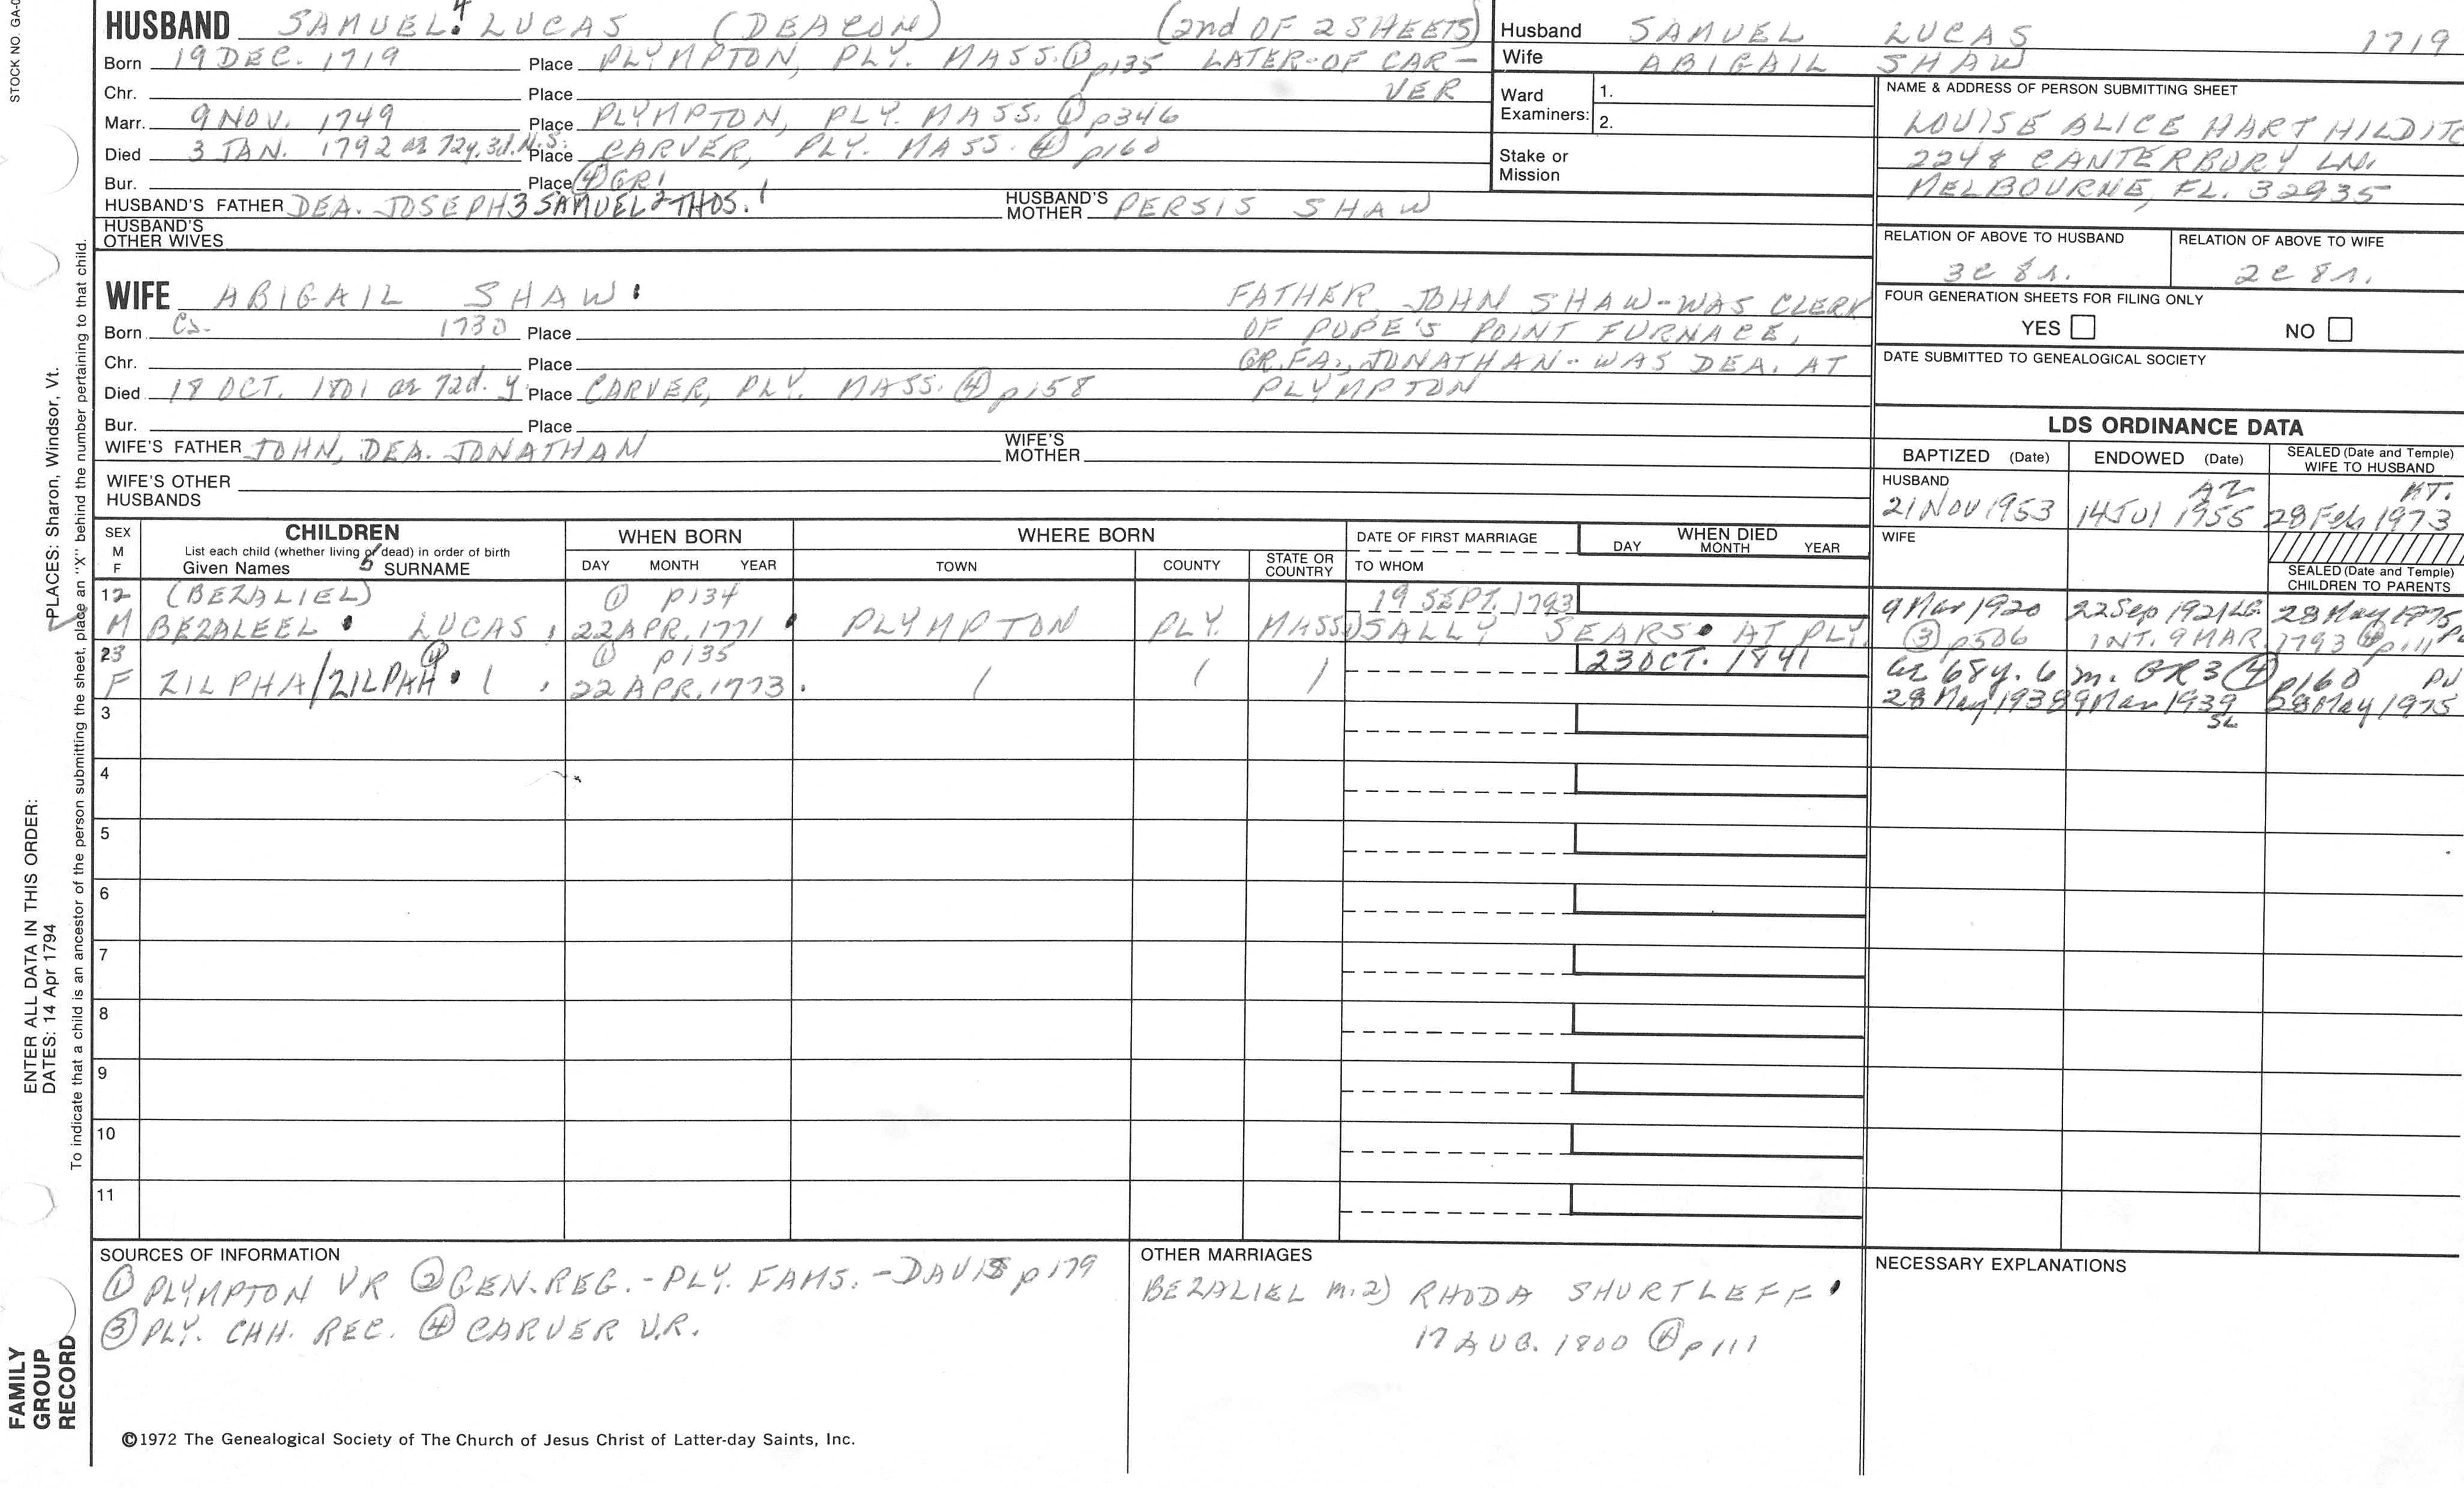 STOCK NO. GA-0
HUSBAND SAMUEL⁴ LUCAS (DEACON) (2nd OF 2 SHEETS)
Born 19 DEC. 1719 Place PLYMPTON, PLY. MASS. ① p135 LATER-OF CAR-
Chr. Place VER
Marr. 9 NOV. 1749 Place PLYMPTON, PLY. MASS. ① p346
Died 3 JAN. 1792 ae 72y. 3d. N.S. Place CARVER, PLY. MASS. ④ p160
Bur. Place ④ GR1
HUSBAND'S FATHER DEA. JOSEPH³ SAMUEL² THOS.¹ HUSBAND'S MOTHER PERSIS SHAW
HUSBAND'S OTHER WIVES
Husband SAMUEL LUCAS 1719
Wife ABIGAIL SHAW
Ward Examiners: 1.
2.
Stake or Mission
NAME & ADDRESS OF PERSON SUBMITTING SHEET
LOUISE ALICE HART HILDITC
2248 CANTERBURY LN.
MELBOURNE, FL. 32935
RELATION OF ABOVE TO HUSBAND RELATION OF ABOVE TO WIFE
3c 8r. 2c 8r.
FOUR GENERATION SHEETS FOR FILING ONLY
YES NO
DATE SUBMITTED TO GENEALOGICAL SOCIETY
WIFE ABIGAIL SHAW FATHER, JOHN SHAW-WAS CLERK
Born Ca. 1730 Place OF POPE'S POINT FURNACE,
Chr. Place GR.FA., JONATHAN-WAS DEA. AT
Died 18 OCT. 1801 ae 72d. y Place CARVER, PLY. MASS. ④ p158 PLYMPTON
Bur. Place
WIFE'S FATHER JOHN, DEA. JONATHAN WIFE'S MOTHER
WIFE'S OTHER HUSBANDS
LDS ORDINANCE DATA
BAPTIZED (Date) ENDOWED (Date) SEALED (Date and Temple) WIFE TO HUSBAND
HUSBAND AZ
21 Nov 1953 14 Jul 1955 28 Feb 1973
WIFE
SEALED (Date and Temple) CHILDREN TO PARENTS
SEX M F CHILDREN WHEN BORN WHERE BORN DATE OF FIRST MARRIAGE WHEN DIED
List each child (whether living or dead) in order of birth DAY MONTH YEAR
Given Names 5 SURNAME DAY MONTH YEAR TOWN COUNTY STATE OR COUNTRY TO WHOM
12 (BEZALIEL) ① p134 19 SEPT. 1793
M BEZALEEL LUCAS, 22 APR. 1771 PLYMPTON PLY. MASS. SALLY SEARS AT PLY. 9 Mar 1920 22 Sep 1921 LG 28 May 1975
③ p506 INT. 9 MAR. 1793 ④ p111
23 ④ ① p135 23 OCT. 1841 ae 68y. 6 m. GR3 ④ p160
F ZILPHA/ZILPAH 22 APR. 1773. 28 May 1938 9 Mar 1939 SL 28 May 1975
3
4
5
6
7
8
9
10
11
SOURCES OF INFORMATION
① PLYMPTON VR ② GEN. REG. - PLY. FAMS. - DAVIS p179
③ PLY. CHH. REC. ④ CARVER V.R.
OTHER MARRIAGES
BEZALIEL m. 2) RHODA SHURTLEFF
17 AUG. 1800 ④ p111
NECESSARY EXPLANATIONS
©1972 The Genealogical Society of The Church of Jesus Christ of Latter-day Saints, Inc.
PLACES: Sharon, Windsor, Vt.
ENTER ALL DATA IN THIS ORDER:
DATES: 14 Apr 1794
To indicate that a child is an ancestor of the person submitting the sheet, place an "X" behind the number pertaining to that child.
FAMILY
GROUP
RECORD